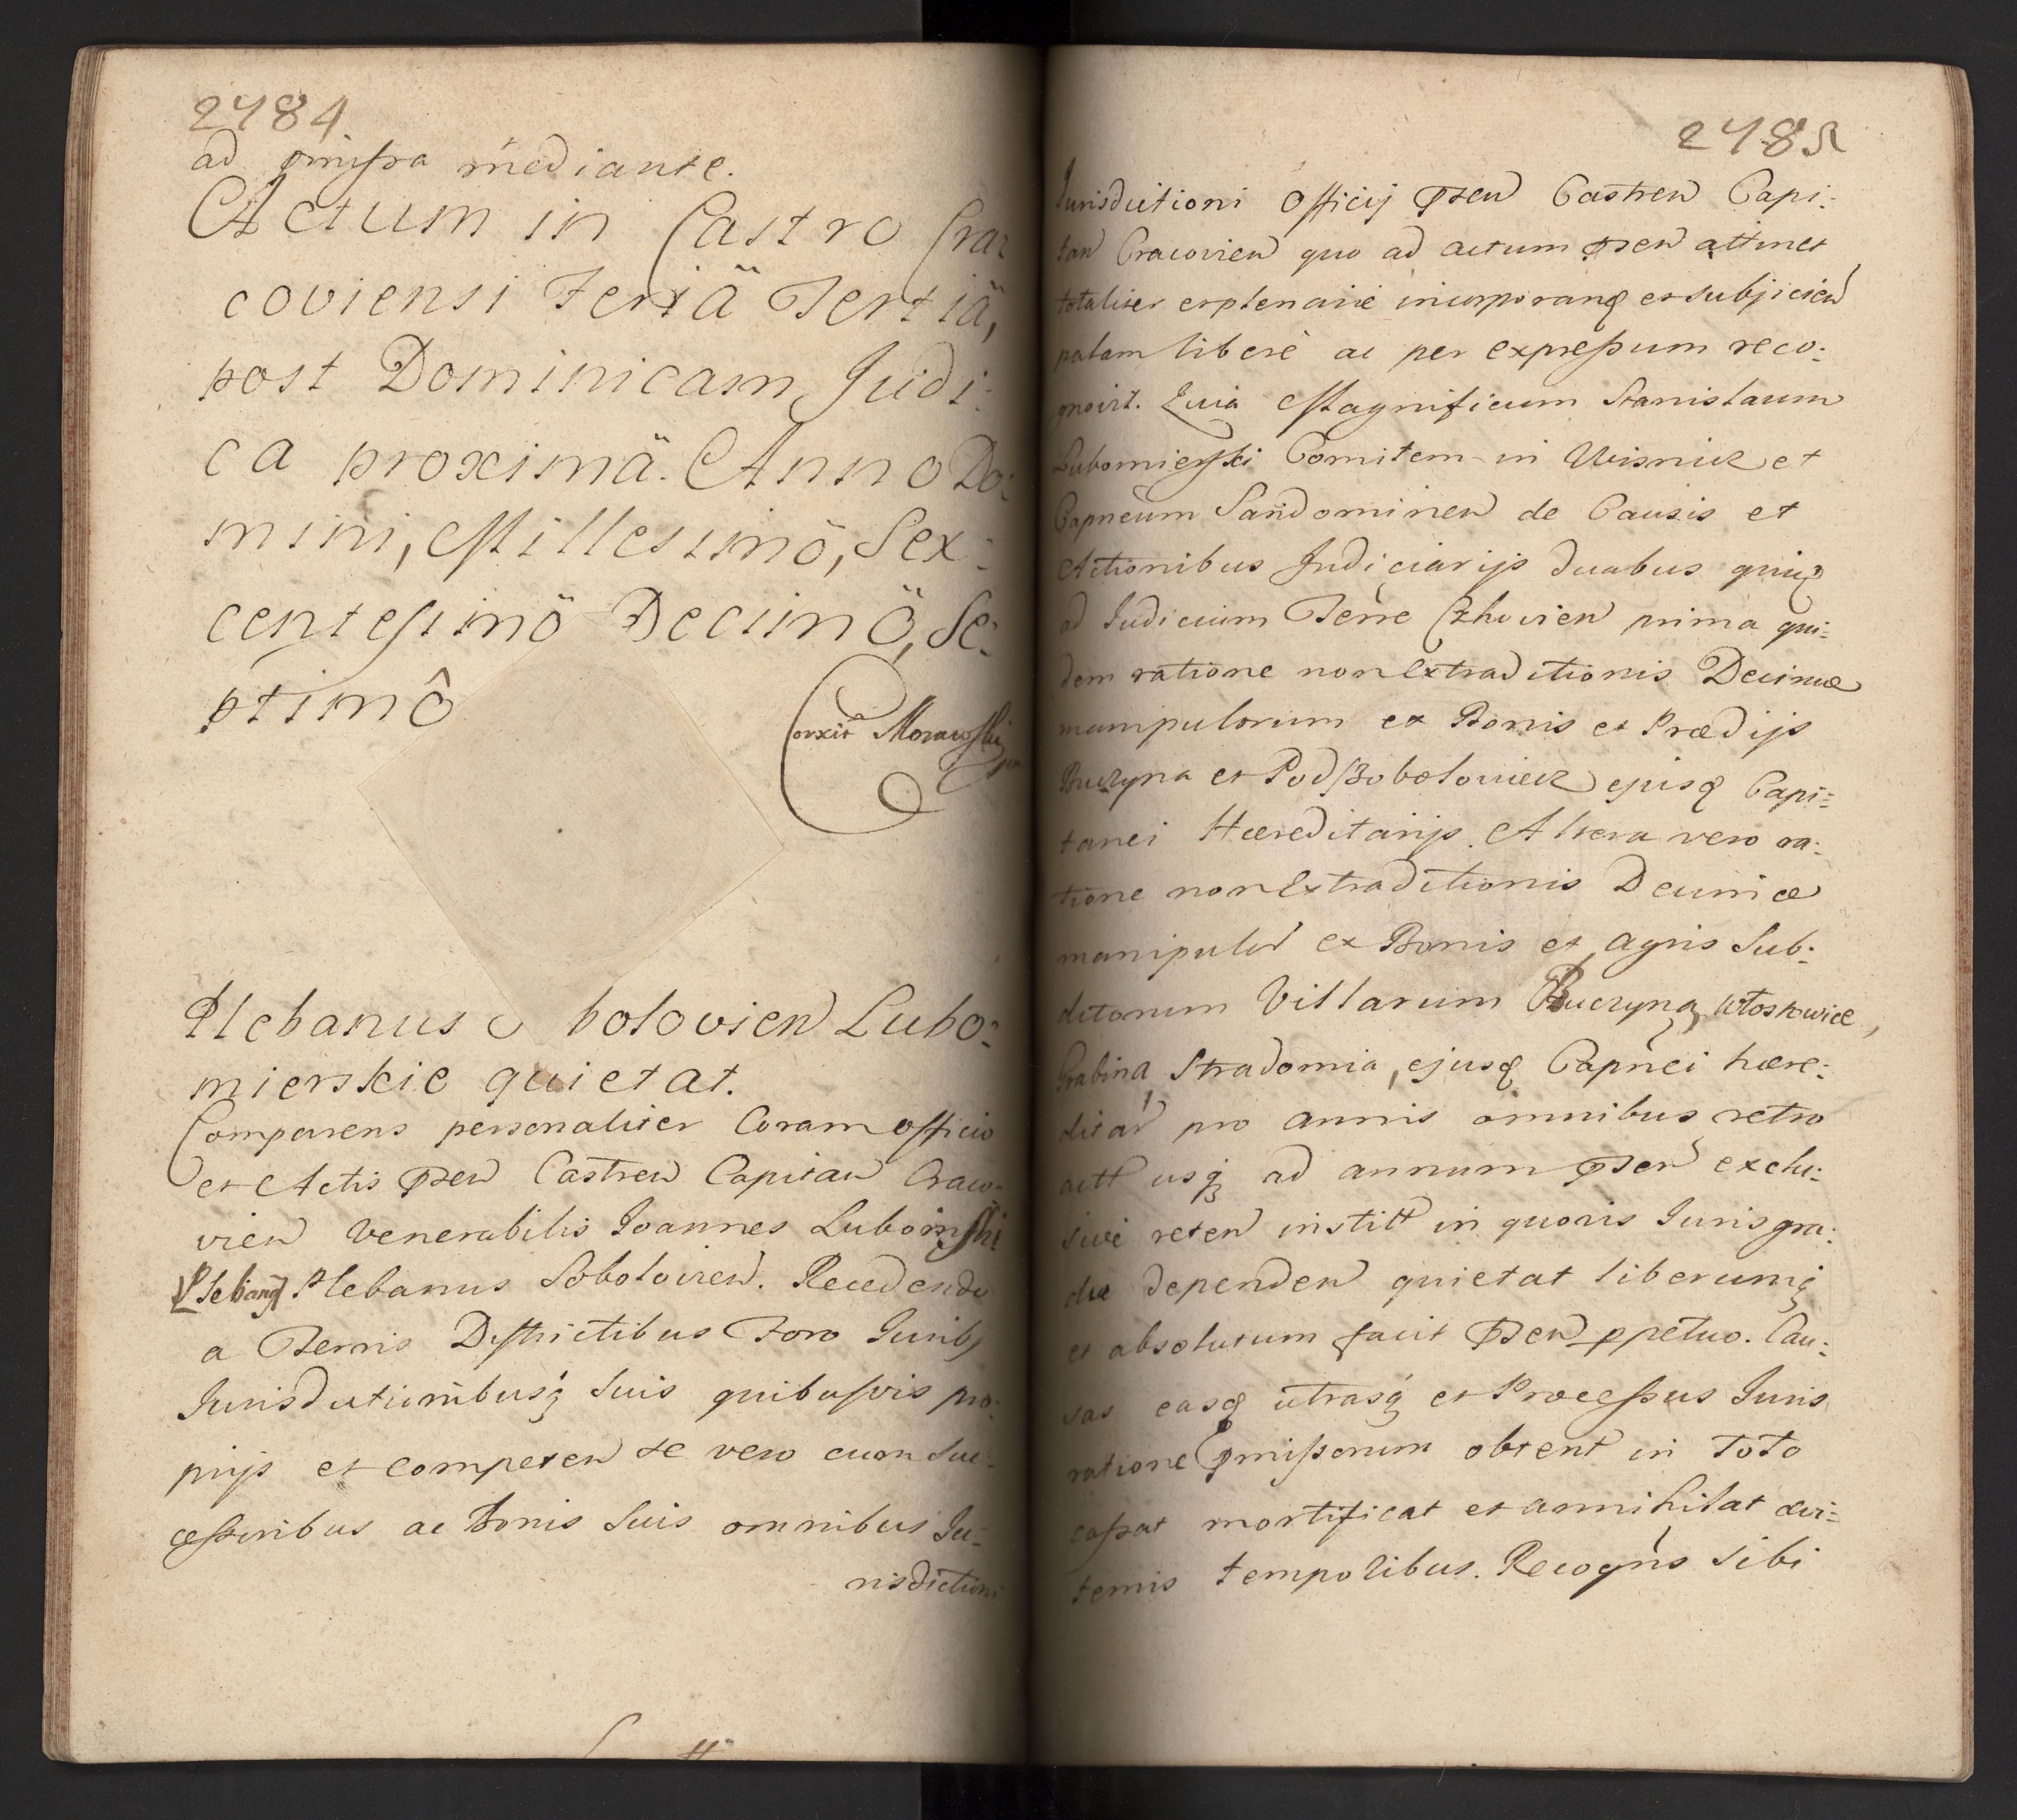 2484
ad pmissa mediante.
Actum in Castro Cra:
coviensi Feriâ Tertiâ,
post Dominicam Judi:
ca proximâ. Anno Do:
mini, Millesimô, Sex:
centesimô Decimô, Se:
ptimô
Correxit Morawski
Plebanus bolovien Lubo:
mierskie quietat.
Comparens personaliter Coram officio
et Actis pñsen Castren Capitan Craco:
vien Venerabilis Joannes Lubomski
Plebanus Sobolovien. Recedendo
a Terris Districtibus Foro Juribq
Jurisdictionibusq suis quibusvis pro:
prijs et competen se vero cum suc:
cessoribus ac bonis suis omnibus Ju:
risdictioni
2485
Jurisdictioni Officij pñsen Castren Capi:
tan Cracovien quo ad actum pñsen attinet
totaliter et plenarie incorporanq et subjicien
palam liberè ac per expressum reco:
gnovit. Quia Magnificum Stanislaum
Lubomierski Comitem in Wisnicz et
Capneum Sandomirien de Causis et
Actionibus Judiciarijs duabus
ad Judicium Terre Czhovien prima qui:
dem ratione non Extraditionis Decimæ
manipulorum ex Bonis et Prædijs
Buczyna et Podsobolowicz ejusq Capi:
tanei Hæreditarijs. Altera vero ra:
tione non Extraditionis Decimæ
manipulor ex Bonis et agris Sub:
ditorum Villarum Buczyna, Wtoskowice,
Grabina Stradomia, ejusq Capnei hære:
ditar pro annis omnibus retro
actt usq ad annum pñsen exclu:
sive reten institt in quovis Juris gra:
du dependen quietat liberumq
et absolutum facit pñsen ppetuo. Cau:
sas easq utrasq et Processus Juris
ratione pmissorum obtent in toto
cassat mortificat et annihilat ævi:
ternis temporibus. Recogñs sibi